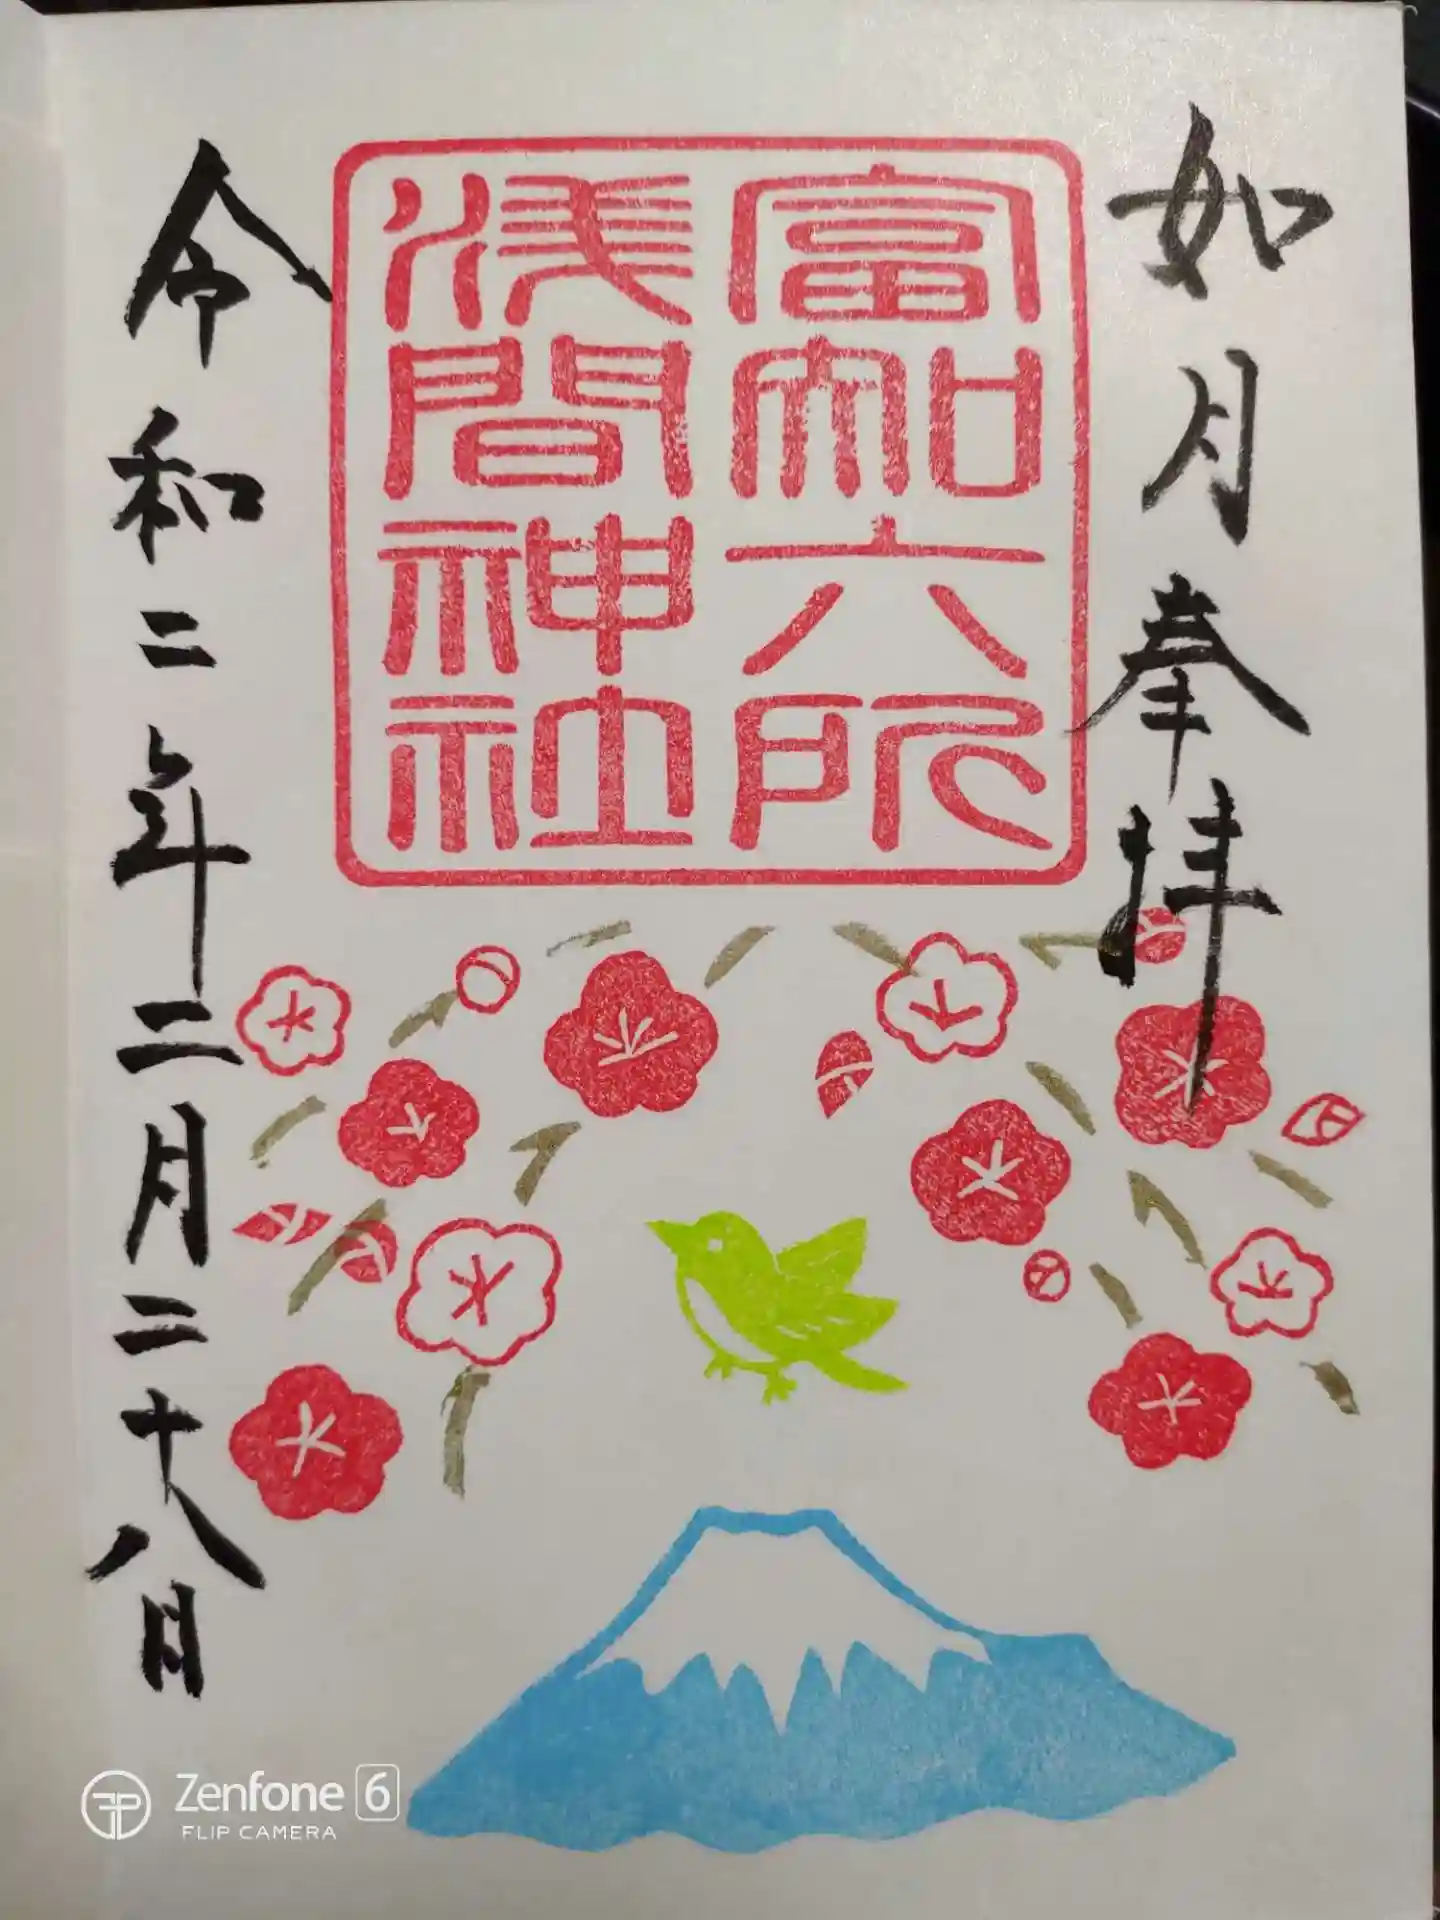 如月奉拝
富知六所
浅間神社
令和二年二月二十八日
Zenfone 6
FLIP CAMERA